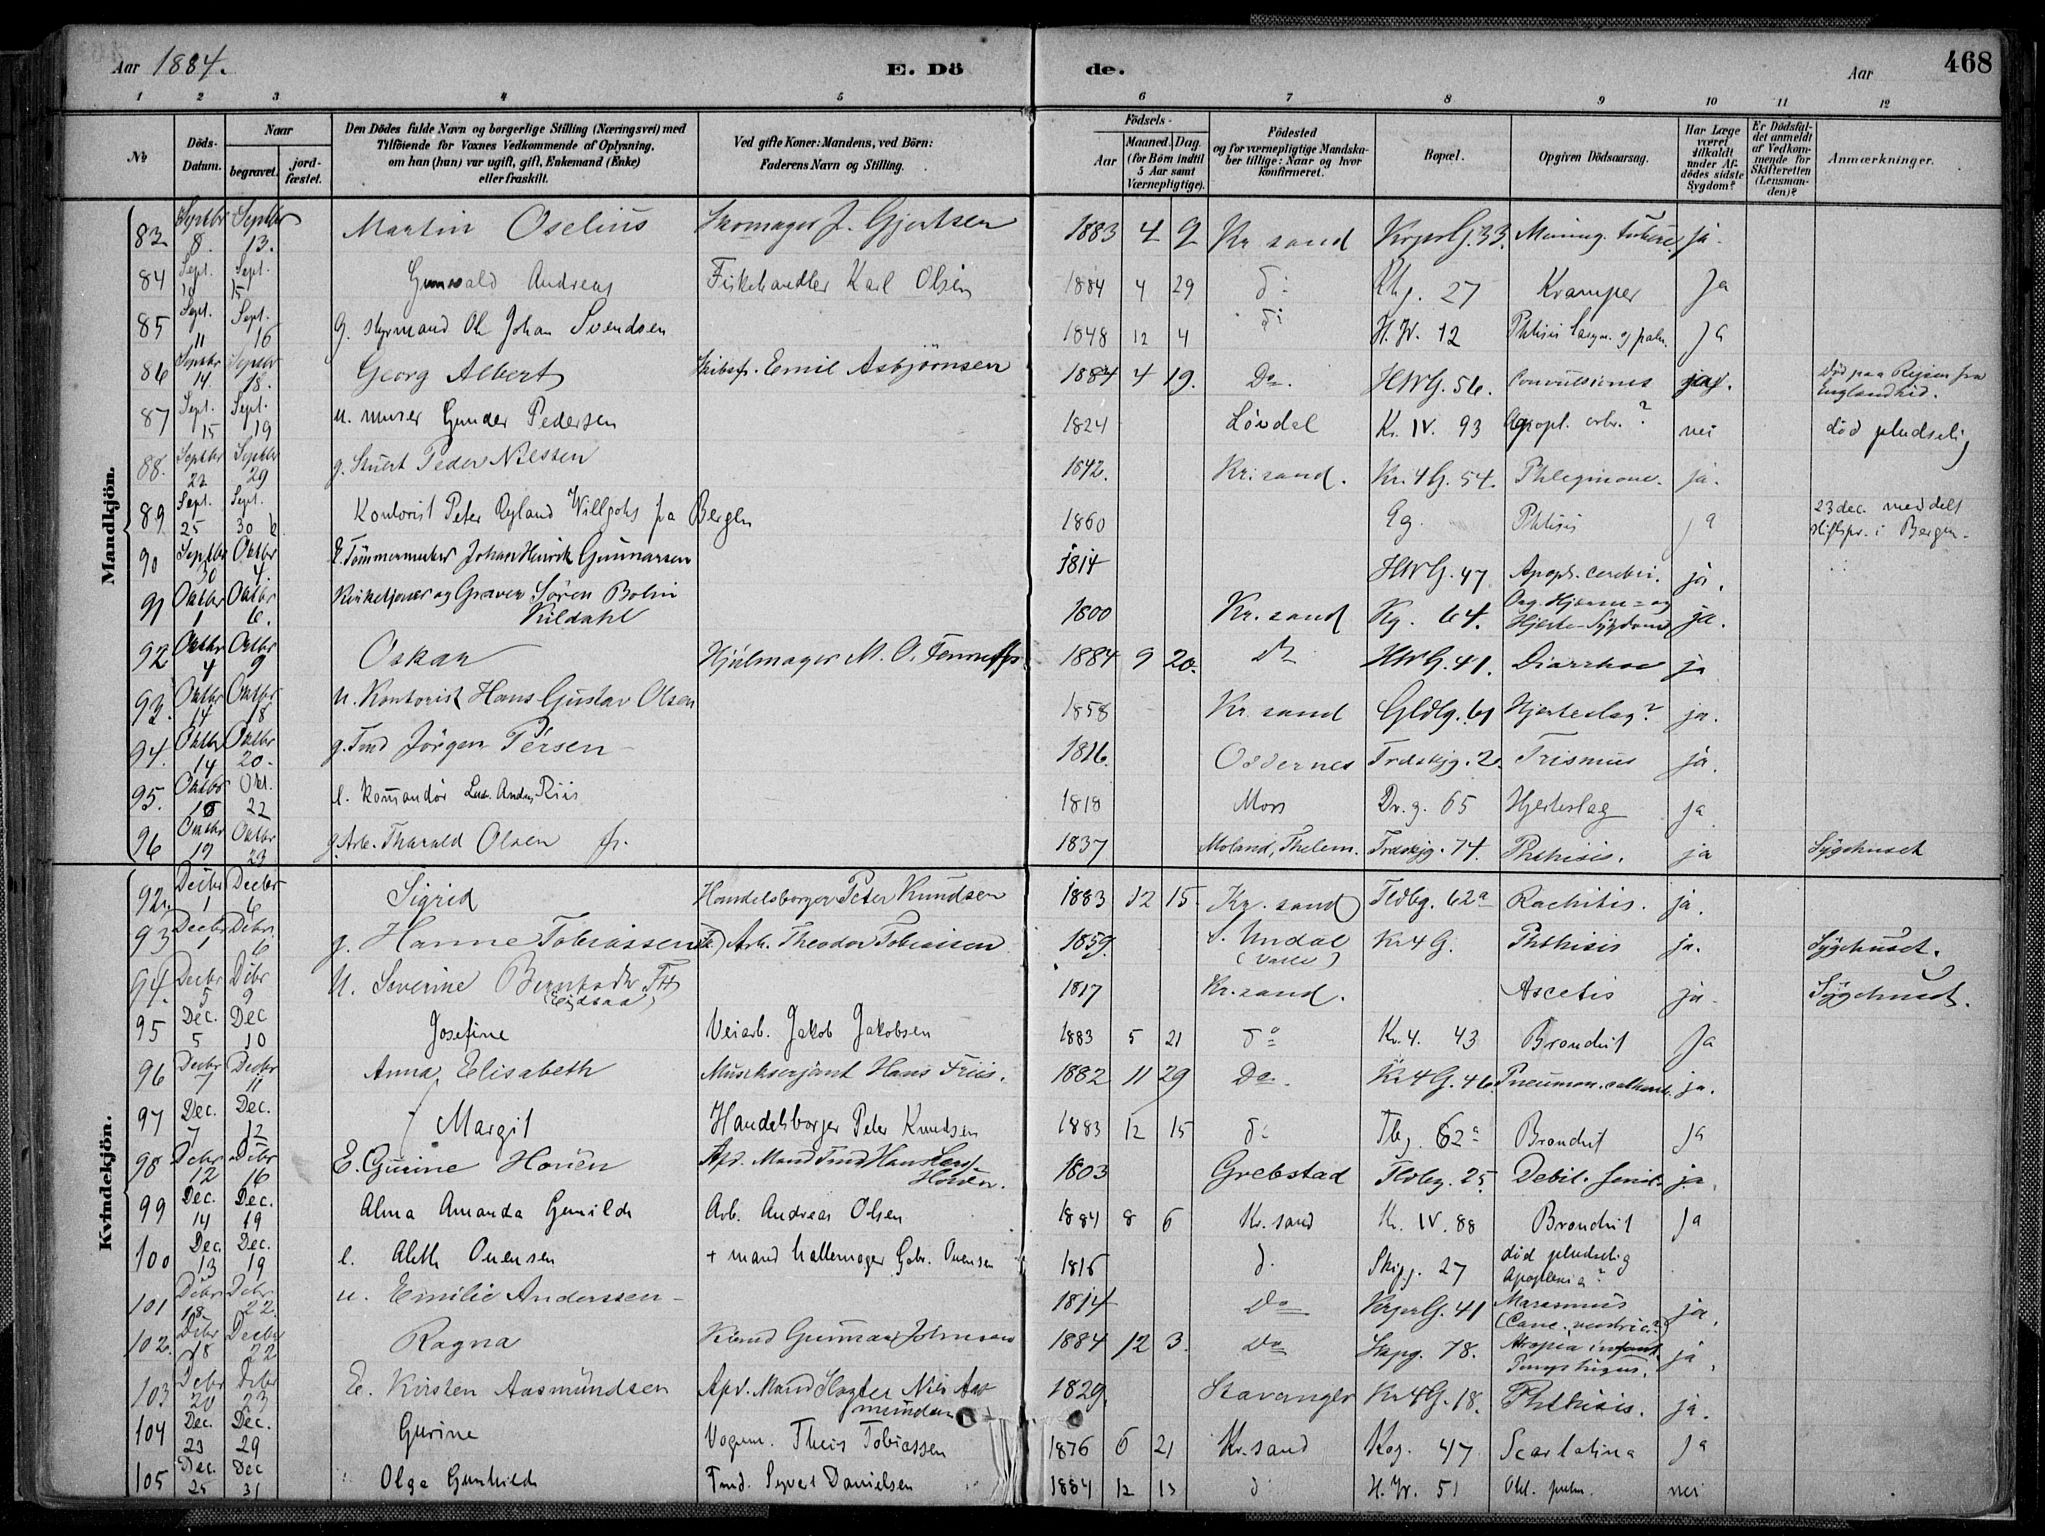 Aar 1884. E. Dö de. Aar 468
1 2 3 4 5 6 7 8 9 10 11 12
No
Döds-Datum.
Naar
begravet.
jord-fæstet.
Den Dödes fulde Navn og borgerlige Stilling (Næringsvei) med
Tilföiende for Voxnes Vedkommende af Oplysning,
om han (hun) var ugift, gift, Enkemand (Enke)
eller fraskilt.
Ved gifte Koner: Mandens, ved Börn:
Faderens Navn og Stilling.
Födsels-
Aar
Maaned. Dag.
(for Börn indtil
5 Aar samt
Værnepligtige).
Födested
og for værnepligtige Mandska-
ber tillige: Naar og hvor
konfirmeret.
Bopæl.
Opgiven Dödsaarsag.
Har Læge
været
tilkaldt
under Af-
dödes sidste
Sygdom?
Er Dödsfal-
det anmeldt
af Vedkom-
mende for
Skifteretten
(Lensman-
den)?
Anmærkninger.
Mandkjön.
83 Septbr 8. Septbr 13. Martin Oselius Skomager J. Gjertsen 1883 4 9 Kr sand KrperG. 33. Mening. tuberc. ja.
84 Sept. Sept. 15 Gunvald Andreas Fiskehandler Karl Olsen 1884 4 29 do 27 Kramper Ja
85 Sept. 11 Sept. 16 G. Styrmand Ole Johan Svendsen 1848 12 4 do H. W. 12 Phtisis laryn. og pulm. Ja
86 Septbr 14. Septbr 18. Georg Albert Skibsf. Emil Asbjörnsen 1884 4 19. Do. HWG. 56. Convulsiones ja. Död paa Rejsen fra
Englandhid.
87 Sept. 15 Sept. 19 u. murer Gunder Pedersen 1824 Lövdal Kr. IV. 93 Apopl. cerbr.? nei död pludselig
88. Septbr 22 Septbr 29 g. Stuert Peder Nilssen 1842. Kr.sand. Kr. 4 G. 54. Phlegmone. ja.
89 Sept. 25 Sept. 30 Kontorist Peter Ryland Willjohs fra Bergen 1860 Phtisis Ja 23 dec. meddelt
stiftspr. i Bergen.
90 Septbr 30 Oktbr 4. E. Tömmermester Johan Henrik Gunnarsen 1814 HWG. 47 Apopl. cerebri. ja.
91 Oktbr 1 Oktbr 6. Kirketjener og Graver Sören Bolin
Kildahl 1800 Kr. sand Kg. 64. Org. Hjerne- og
Hjerte-Sygdom ja.
92 Oktbr 4 Oktbr 9 Oskar Hjulmager M. O. 1884 9 20. Do HWG. 41. Diarrhoe ja
93. Oktbr 14 Oktbr 18 U. Kontorist Hans Gustav Olsen 1858 Kr. sand Gldlg. 61 Hjerteslag? ja.
94. Oktbr 14 Oktbr 20. g. Tmd Jörgen Persen 1816. Oddernes Trdskjg. 2. Trismus ja.
95. Oktbr Okt. 22 e. Komandör Ludv. Anders Riis 1818 Mors Dr. g. 65 Hjerteslag ja
96 Oktbr 19 Oktbr 23 g. Arb. Tharald Olsen 1837 Moland, Thelem. Trdskjg. 74. Phthisis. ja Sygehuset
Kvindekjön.
92. Decbr 1 Decbr 6 Sigrid Handelsborger Peter Knudsen 1883 12 15. Kr. sand Tldbg. 62a Rachitis. ja.
93 Decbr 1 Debr. 6 g. Hanne Tobiassen Arb. Theodor Tobiassen 1859. S. Undal
(Valle) Kr 4 G. Phthisis ja. Sygehuset.
94. Decbr 5 Debr 9 U. Severine
(Eidsaa) 1817 Kr. sand. Ascetis ja. Sygehuset.
95 Dec. 5 Dec 10 Josefine Veiarb. Jakob Jakobsen 1883 5 21 do Kr. 4. 43 Bronchit Ja
96 Decbr 7 Decbr 11 Anna Elisabeth Musikserjant Hans Friis. 1882 11 29 Do. Kr 4 G. 46 Pneumon. ja.
97 Dec. 7 Dec. 12 Margit Handelsborger Peter Knudsen 1883 12 15 do Tbg. 62a Bronchit Ja
98 Debr 12 Debr 16 E. Gurine Houen Apd. Mand Tmd Hans
Houen. 1803 Grebstad Tldbg. 25. Debil. senil. ja.
99 Dec. 14 Dec. 19 Alma Amanda Gunilde Arb. Andreas Olsen 1884 8 6 Kr. sand Kr. IV. 88 Bronchit Ja
100 Dec. 13 Dec. 19 e. Aleth Onensen + mand hattemager Gabr. Onensen 1816 d. Skipg. 27 död pludselig
Apoplexia?
101 Debr 18 Debr 22. u. Emilie Anderssen 1814 Do KrperG. 41 Marasmus
(Canc. ventric.?) ja.
102. Debr 18 Decbr 22 Ragna Gunnar Johnsen 1884 12 3. Do Skpg. 78. Atropia infant.
Pemphigus. ja.
103 Debr 20 Debr 23 E. Kirsten Aasmundsen Apd. Mand Nils Aas-
mundsen 1829. Stavanger Kr 4 G. 18. Phthisis. ja.
104 Dec. 23 Dec. 29 Gurine Vognm. Theis Tobiassen 1876 6 21 Kr. sand Kog. 47 Scarlatina Ja
105 Dec. 25 Dec 31 Olga Gunhilde Tmd. Syvert Danielsen 1884 12 13 d H. W. 51 nei